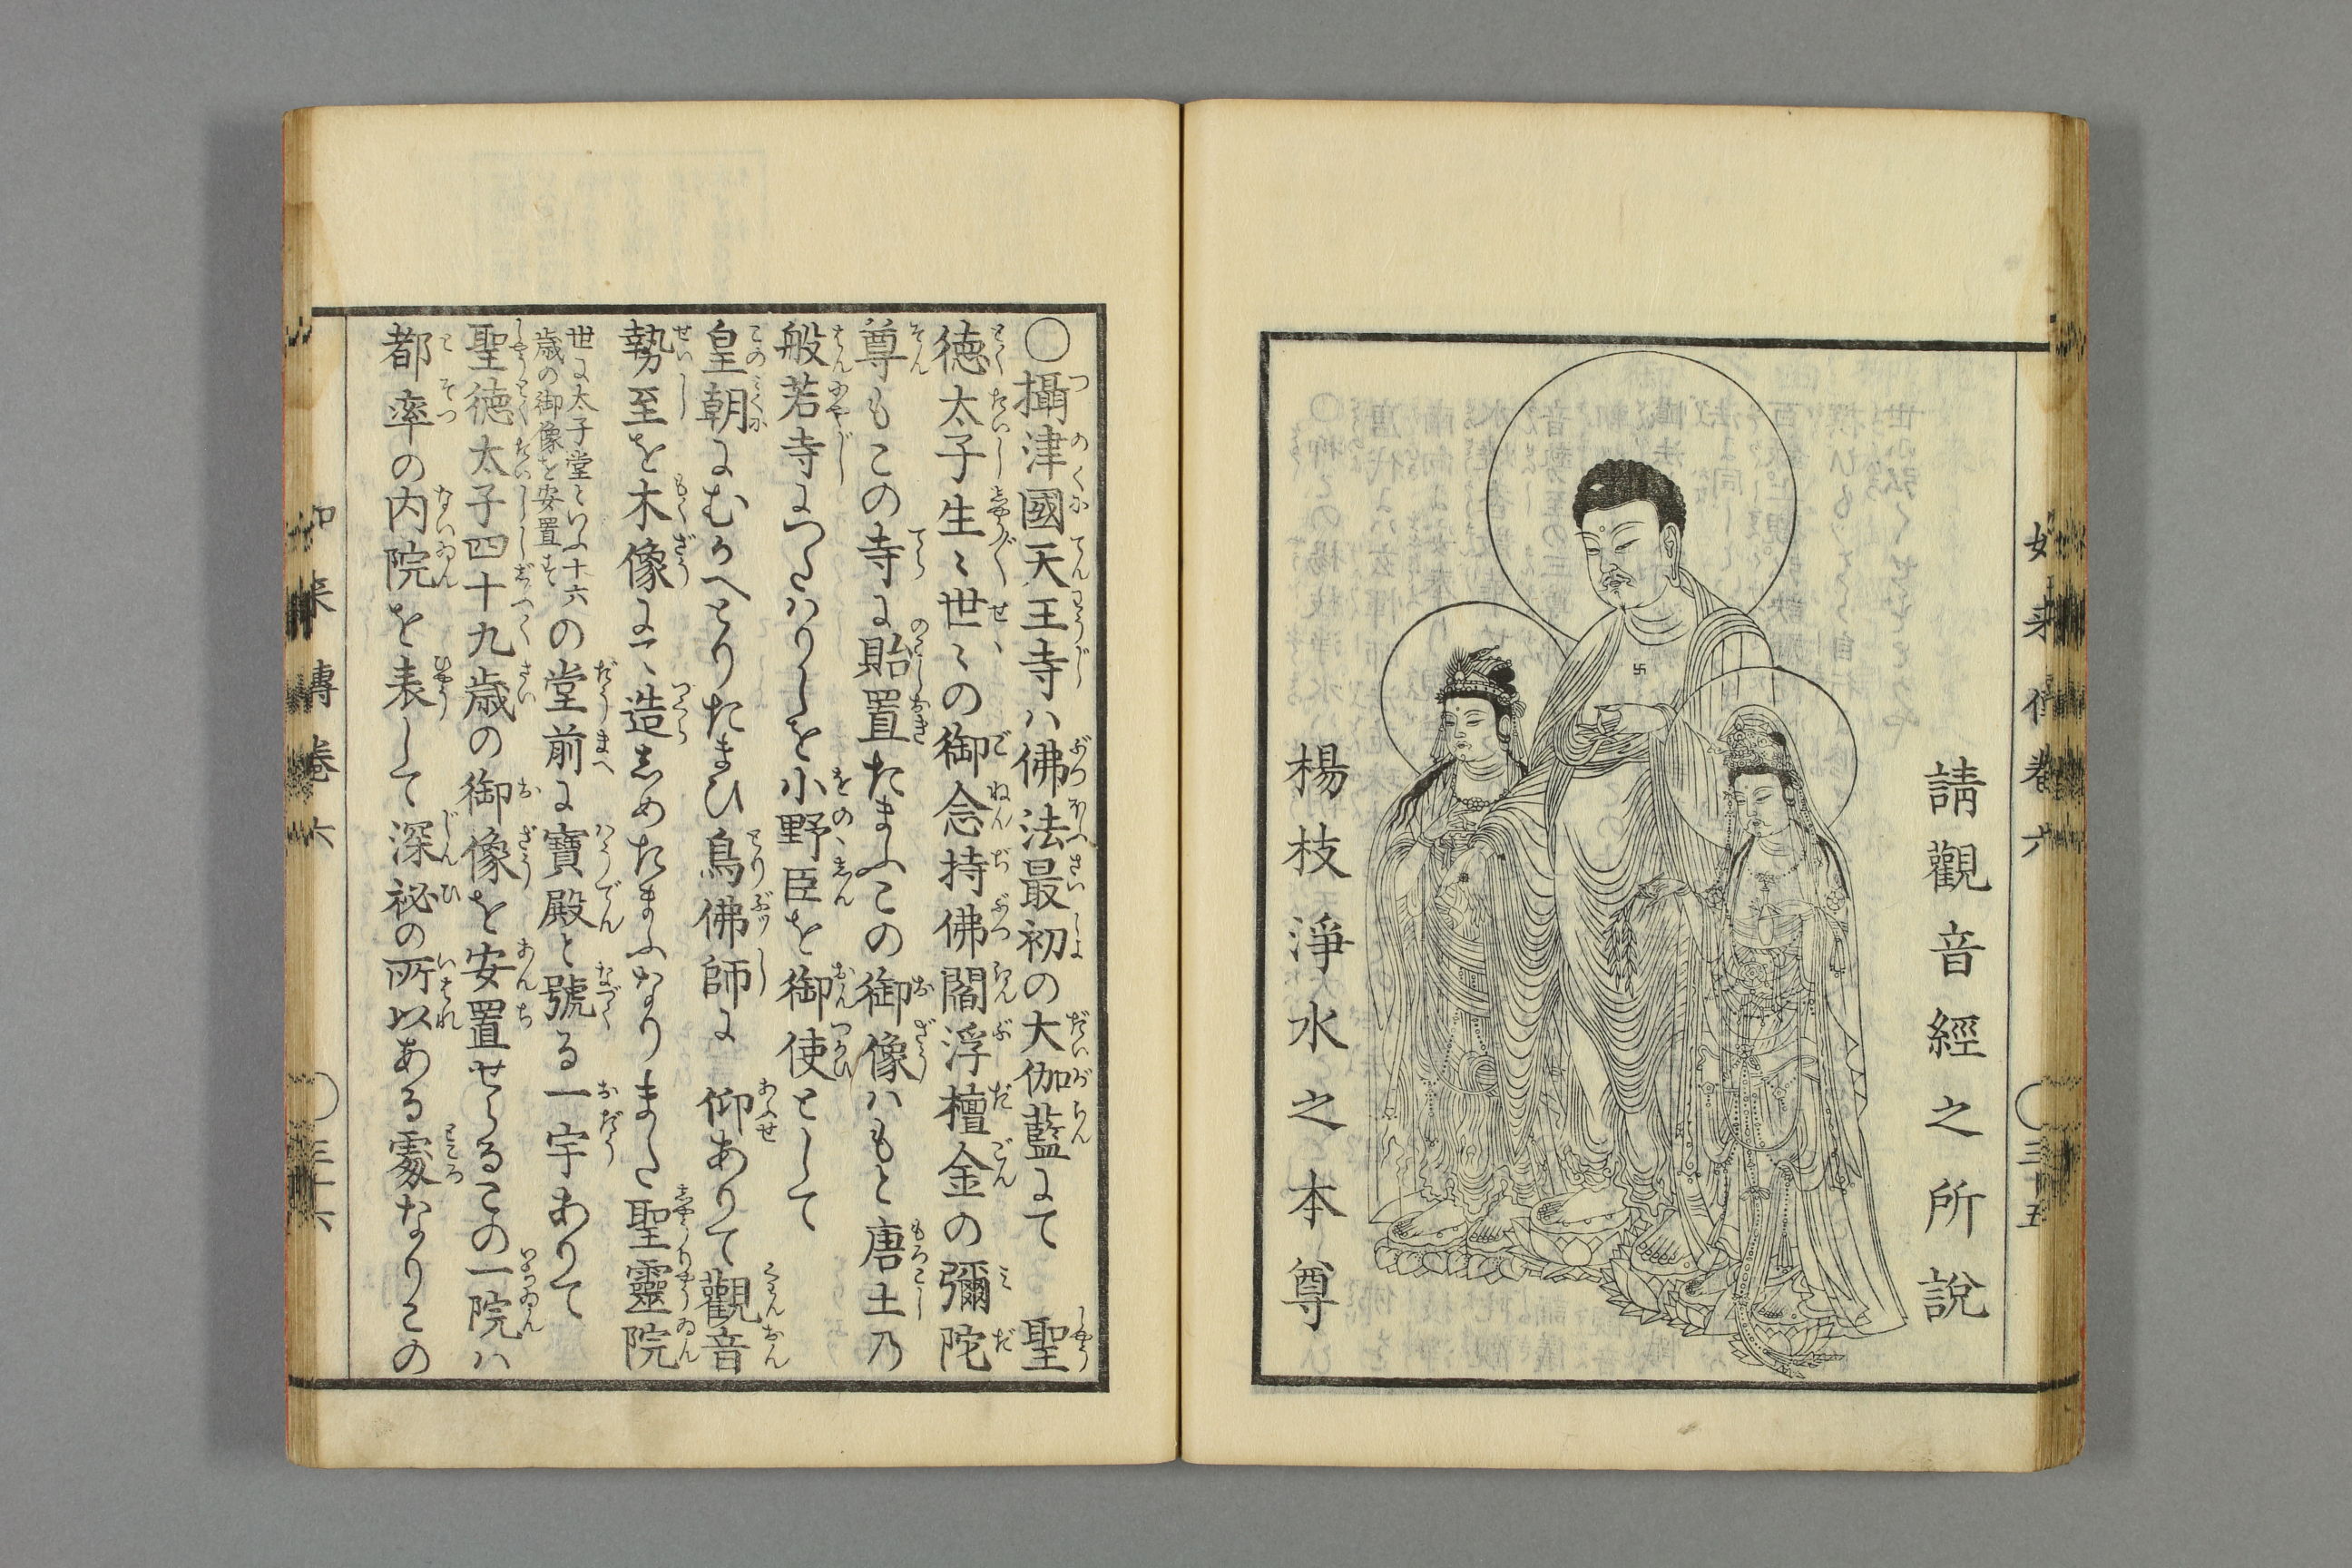 請觀音經之所說
楊枝淨水之本尊
如来傳卷六
〇三十五
〇攝津國天王寺ハ佛法最初の大伽藍にて　聖
徳太子生〻世〻の御念持佛閻浮檀金の彌陀
尊もこの寺に貽置たまふこの御像ハもと唐土乃
般若寺につたハりしを小野臣を御使として
皇朝にむかへとりたまひ鳥佛師に　仰ありて觀音
勢至を木像にて造志めたまふなりまた聖靈院
世に太子堂といふ十六
歳の御像を安置す
の堂前に寶殿と號る一宇ありて
聖徳太子四十九歳の御像を安置せらるこの一院ハ
都率の内院を表して深祕の所以ある處なりこの
如来傳卷六
〇三十六